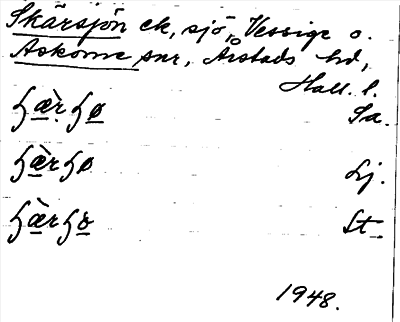 Skärsjön ek, sjö, Vessige o.
Askome snr, Årstads hd,
Hall. l.
ʃæ̀rʃø Sa.
ʃæ̀rʃø Lj.
ʃæ̀rʃö St.
1948.